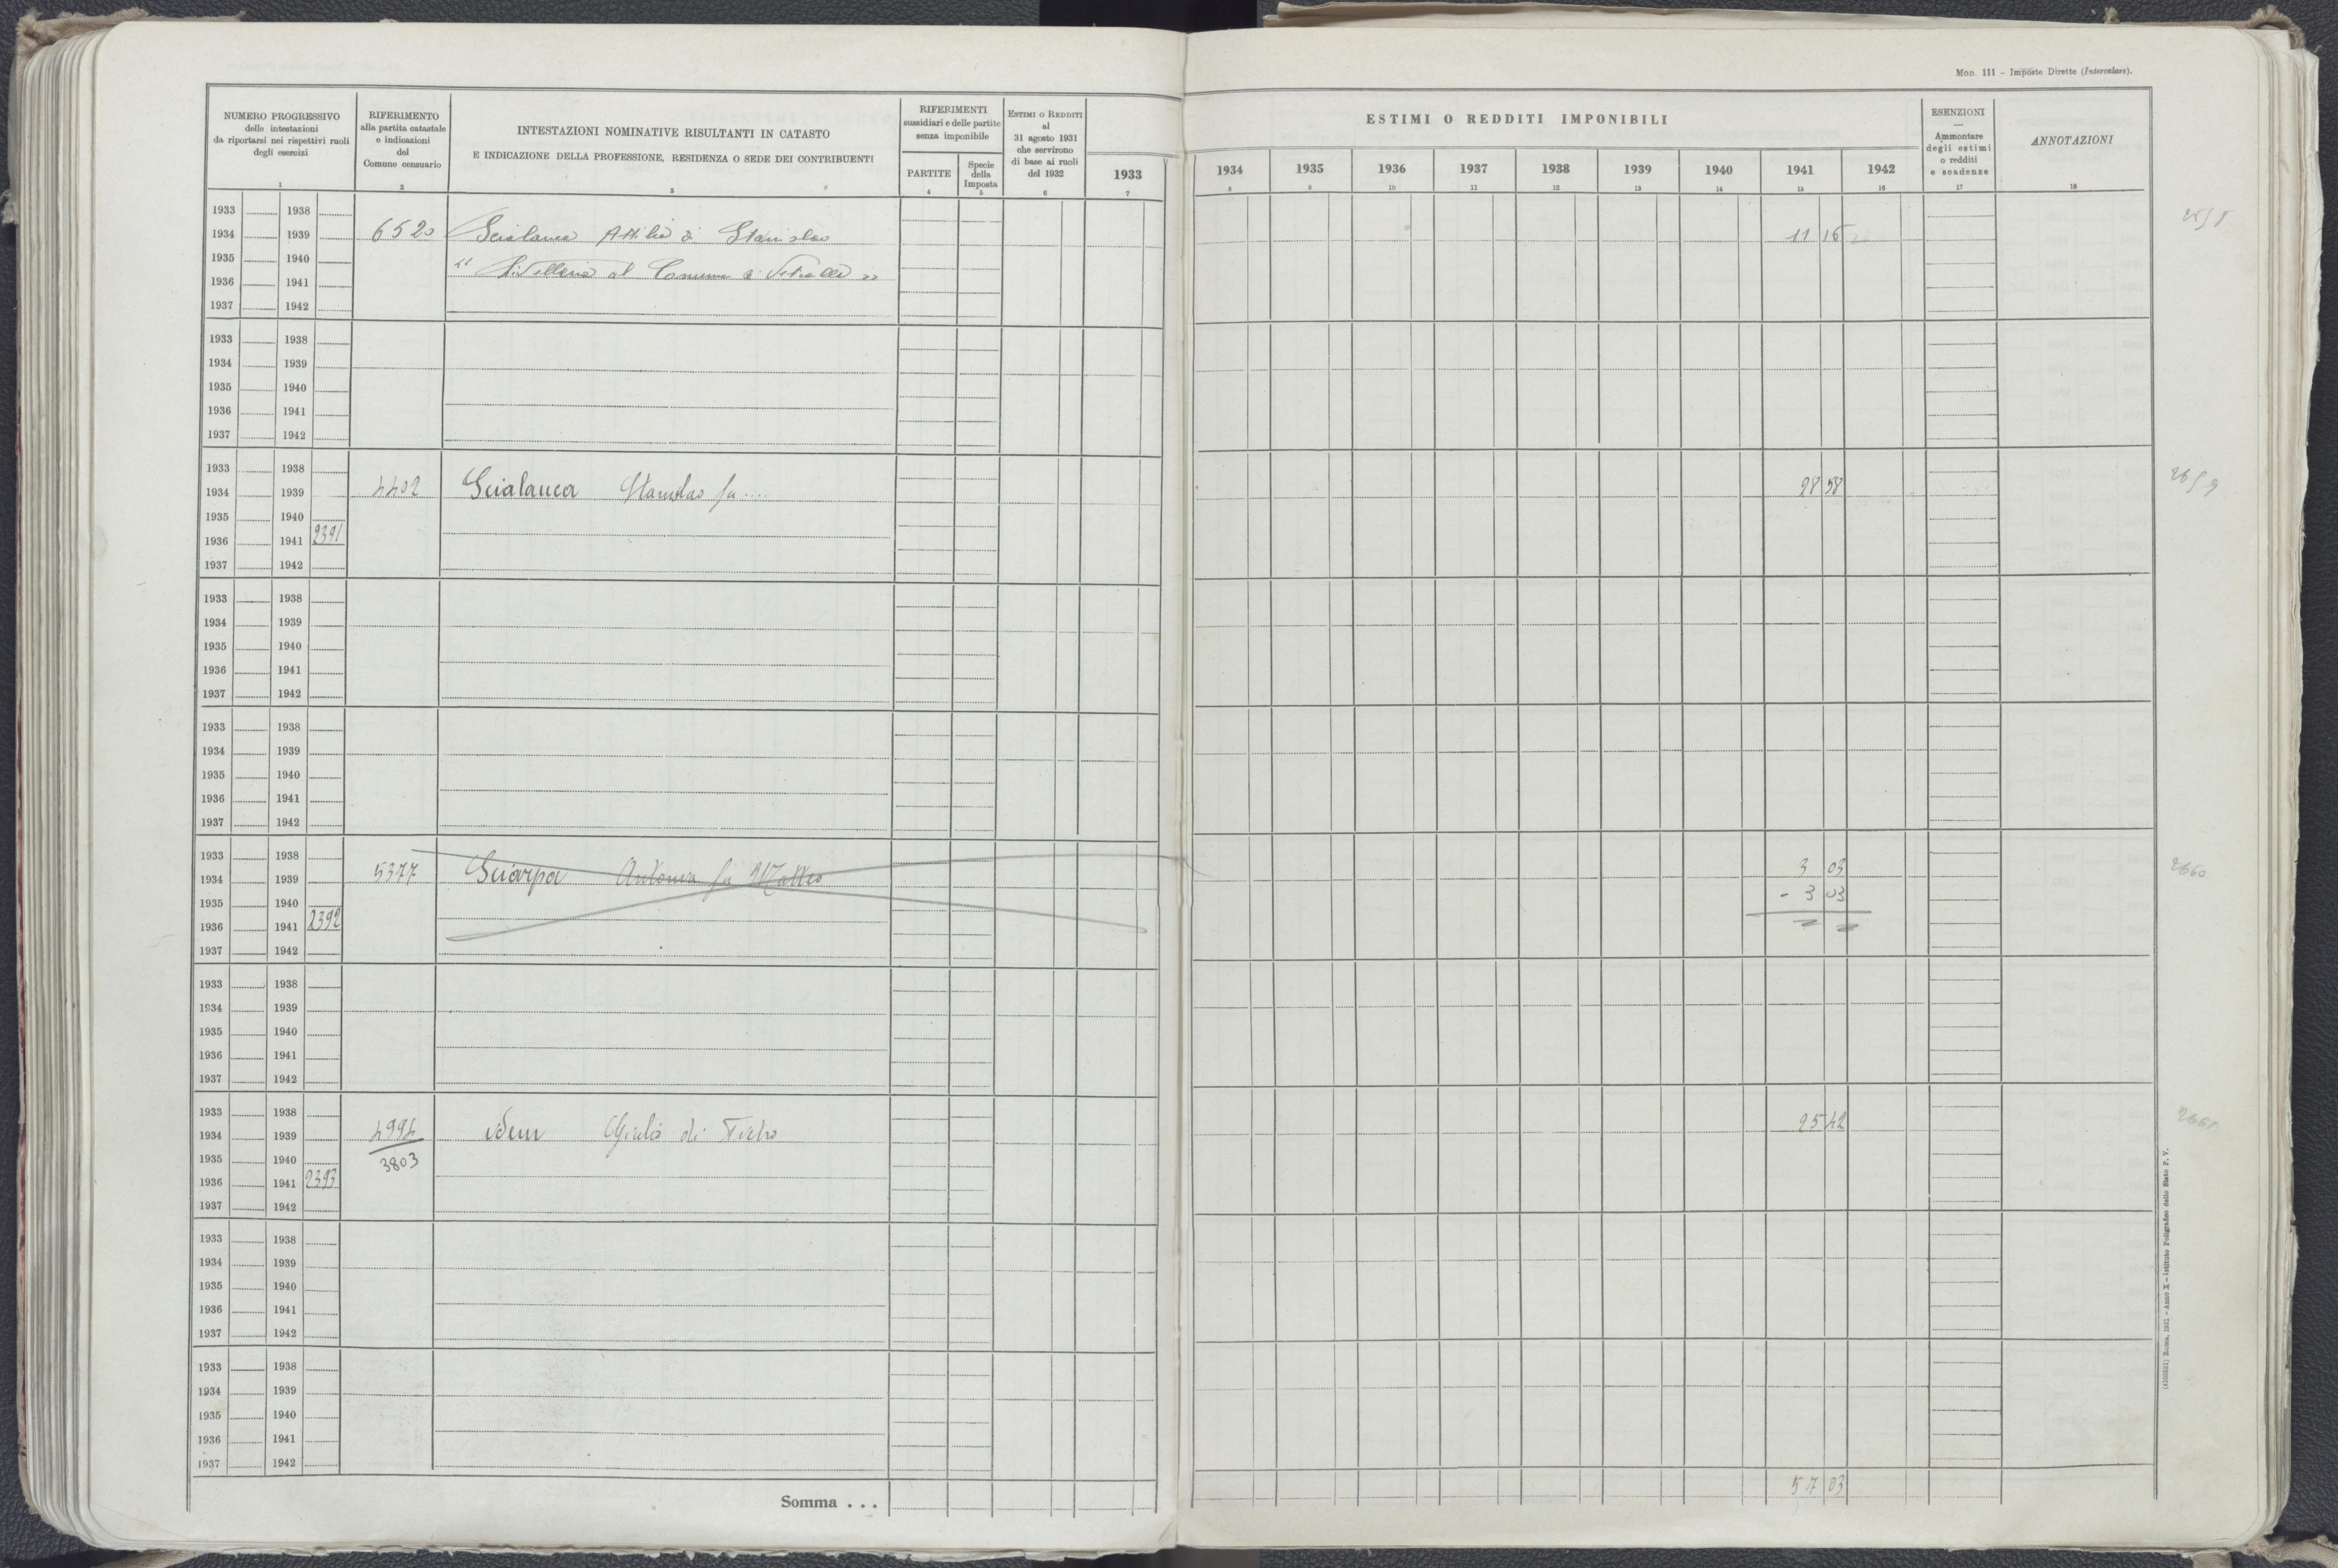 MOD. 111 - Imposte Dirette (Intercalare).
NUMERO PROGRESSIVO
delle intestazioni
da riportarsi nei rispettivi ruoli
degli esercizi
1
RIFERIMENTO
alla partita catastale
e indicazioni
del
Comune censuario
2
INTESTAZIONI NOMINATIVE RISULTANTI IN CATASTO
E INDICAZIONE DELLA PROFESSIONE, RESIDENZA O SEDE DEI CONTRIBUENTI
3
RIFERIMENTI
sussidiari e delle partite
senza imponibile
PARTITE
4
Specie
della
Imposta
5
ESTIMI O REDDITI
al
31 agosto 1931
che servirono
di base ai ruoli
del 1932
6
1933
7
ESTIMI O REDDITI IMPONIBILI
1934 1935 1936 1937 1938 1939 1940 1941 1942
8 9 10 11 12 13 14 15 16
ESENZIONI
—
Ammontare
degli estimi
o redditi
e scadenze
17
ANNOTAZIONI
18
1933 1938
1934 1939 6520 Scialanca Attilio di Stanislao 11 16
1935 1940 " Livellario al Comune di Vetralla "
1936 1941
1937 1942
1933 1938
1934 1939
1935 1940
1936 1941
1937 1942
1933 1938
1934 1939 4402 Scialanca Stanislao fu .... 28 58 2659
1935 1940
1936 1941 2391
1937 1942
1933 1938
1934 1939
1935 1940
1936 1941
1937 1942
1933 1938
1934 1939
1935 1940
1936 1941
1937 1942
1933 1938
1934 1939 5377 Sciarpa Antonia fu Matteo 3 03 2660
1935 1940 - 3 03
1936 1941 2392
1937 1942
1933 1938
1934 1939
1935 1940
1936 1941
1937 1942
1933 1938
1934 1939 4994 idem Giulio di Pietro 25 42 2661
1935 1940 3803
1936 1941 2393
1937 1942
1933 1938
1934 1939
1935 1940
1936 1941
1937 1942
1933 1938
1934 1939
1935 1940
1936 1941
1937 1942
Somma . . . 57 03
Roma, 1931 - Anno X - Istituto Poligrafico dello Stato P. V.